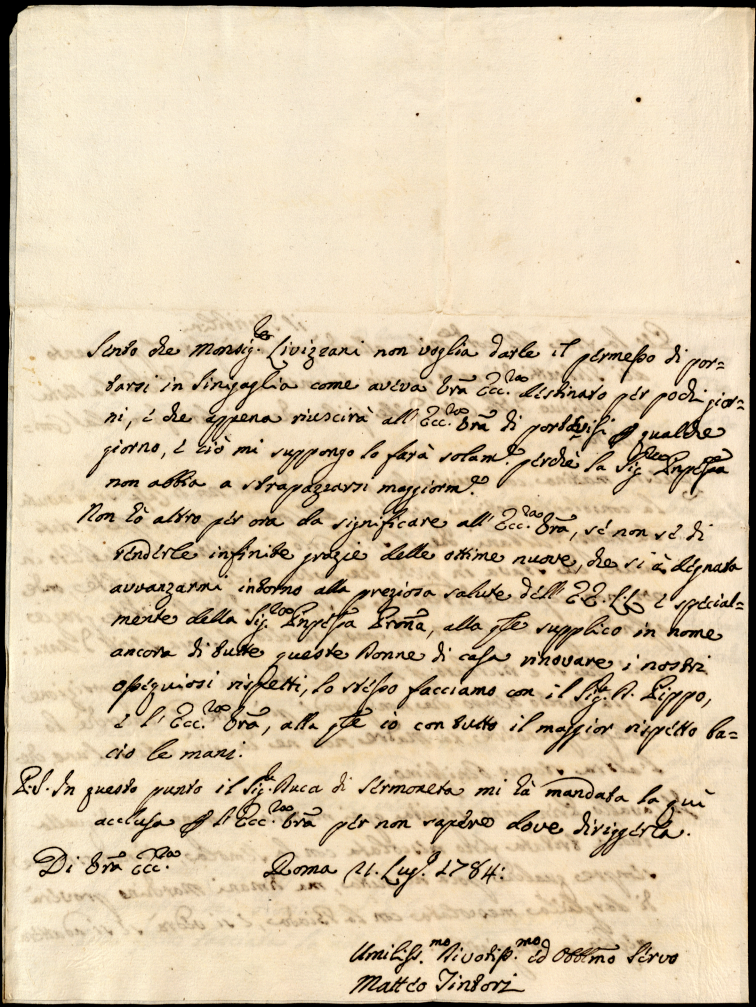 Sento che Monsig.re Livizzani non voglia darle il permesso di por=
tarsi in Sinigaglia come aveva Vrã Ecc.za destinato per pochi gior=
ni, e che appena riuscirà all'Ecc.za Vrã di portarvisi p qualche
giorno, e ciò mi suppongo lo farà solam.e perche la Sig.ra Pnpessa
non abbia a strapazzarsi maggiorm.e
Non hò altro per ora da significare all'Ecc.za Vrã, se non se di
renderle infinite grazie delle ottime nuove, che si è degnata
avvanzarmi intorno alla preziosa salute dell'EE. LL. e special=
mente della Sig.ra Pnpessa Prõna, alla qle supplico in nome
ancora di tutte queste Donne di casa rinovare i nostri
ossequiosi rispetti, lo stesso facciamo con il Sig.r D. Pippo,
e l'Ecc.za Vrã, alla qle io con tutto il maggior rispetto ba=
cio le mani.
P.S. In questo punto il Sig.r Duca di Sermoneta mi hà mandata la quì
acclusa p l'Ecc.za Vrã per non sapere dove diriggerla.
Di Vrã Ecc.za Roma 21. Lug.o 1784:
Umiliss.mo Divotiss.mo ed Obb̃mo Servo
Matteo Tintori